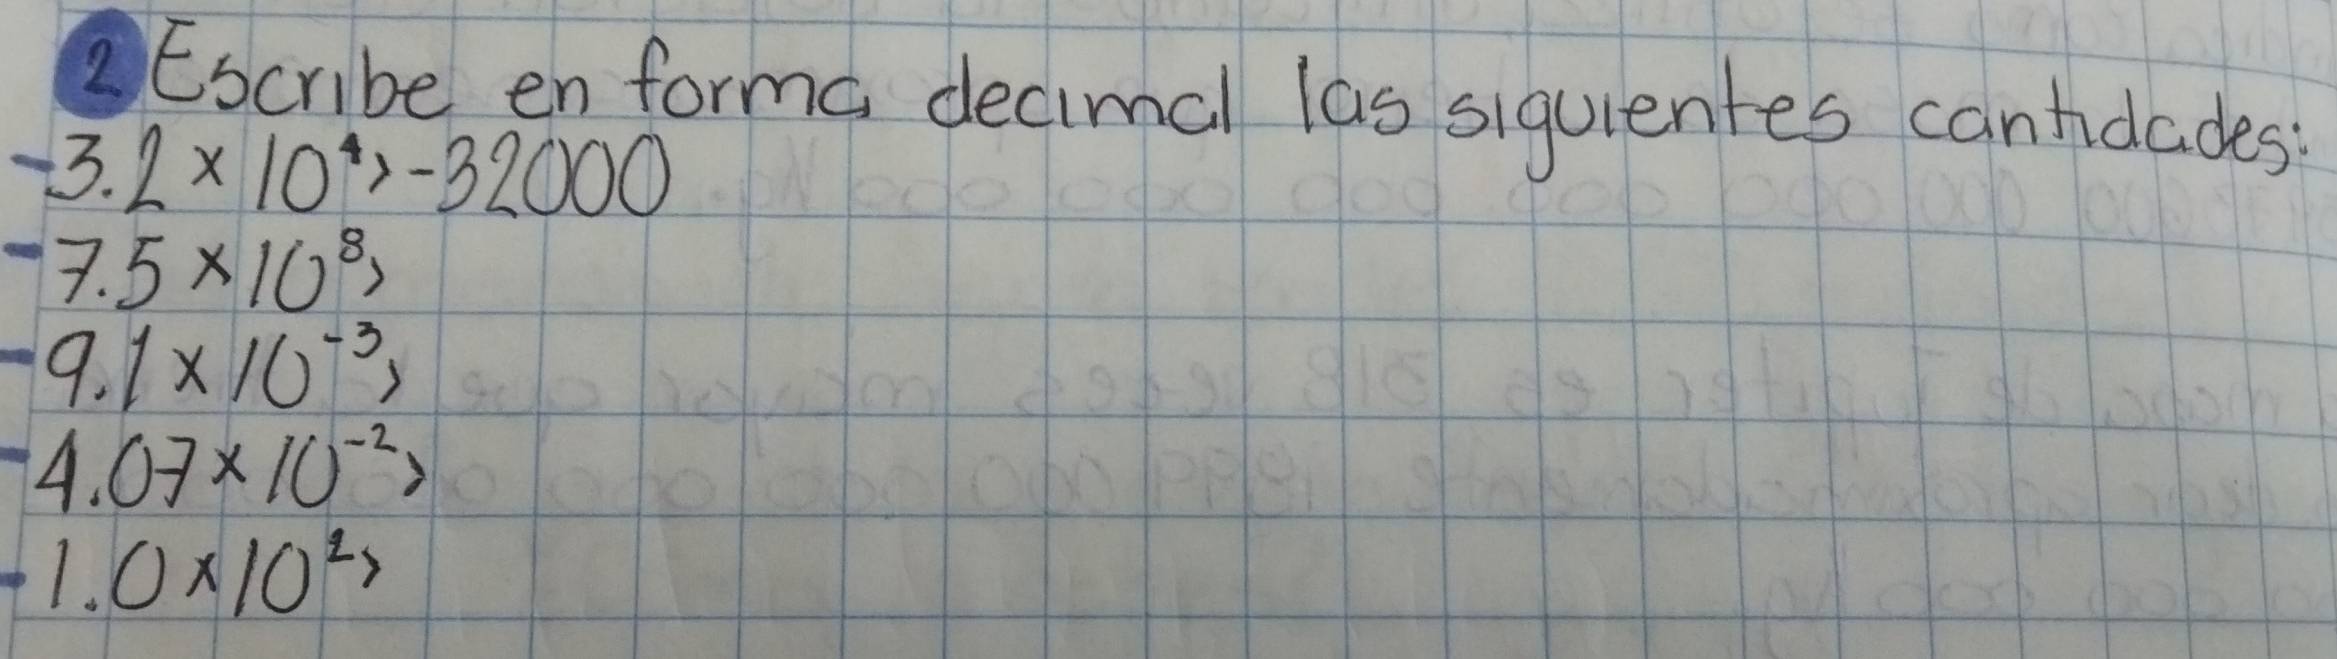 2 Escribe en forma decimal las siguientes cantidades:
-3.2 × 10⁴> -32000
-7.5 × 10⁸>
-9.1 × 10⁻³>
-4.07 × 10⁻²>
-1.0 × 10²>